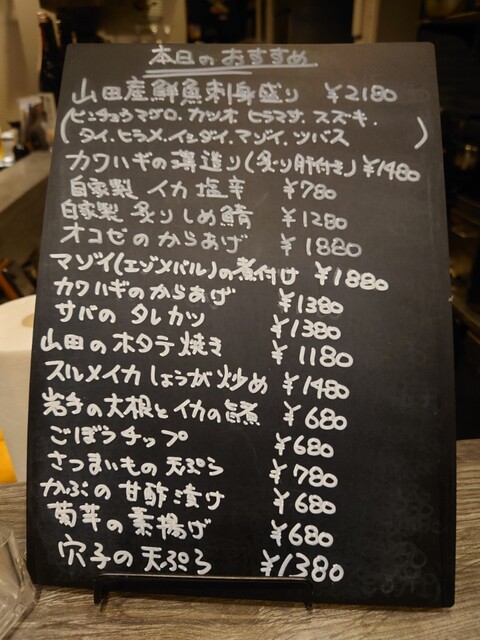 本日のおすすめ
山田産鮮魚刺身盛り ¥2180
(ビンチョウマグロ.カツオ ヒラマサ.スズキ.
タイ.ヒラメ.イシダイ.マゾイ.ツバス)
カワハギの薄造り(炙り肝付き) ¥1480
自家製 イカ塩辛 ¥780
自家製 炙りしめ鯖 ¥1280
オコゼのからあげ ¥1880
マゾイ(エゾメバル)の煮付け ¥1880
カワハギのからあげ ¥1380
サバの タレカツ ¥1380
山田のホタテ焼き ¥1180
スルメイカしょうが炒め ¥1480
岩手の大根とイカの旨煮 ¥680
ごぼうチップ ¥680
さつまいもの天ぷら ¥780
かぶの甘酢漬け ¥680
菊芋の素揚げ ¥680
穴子の天ぷら ¥1380